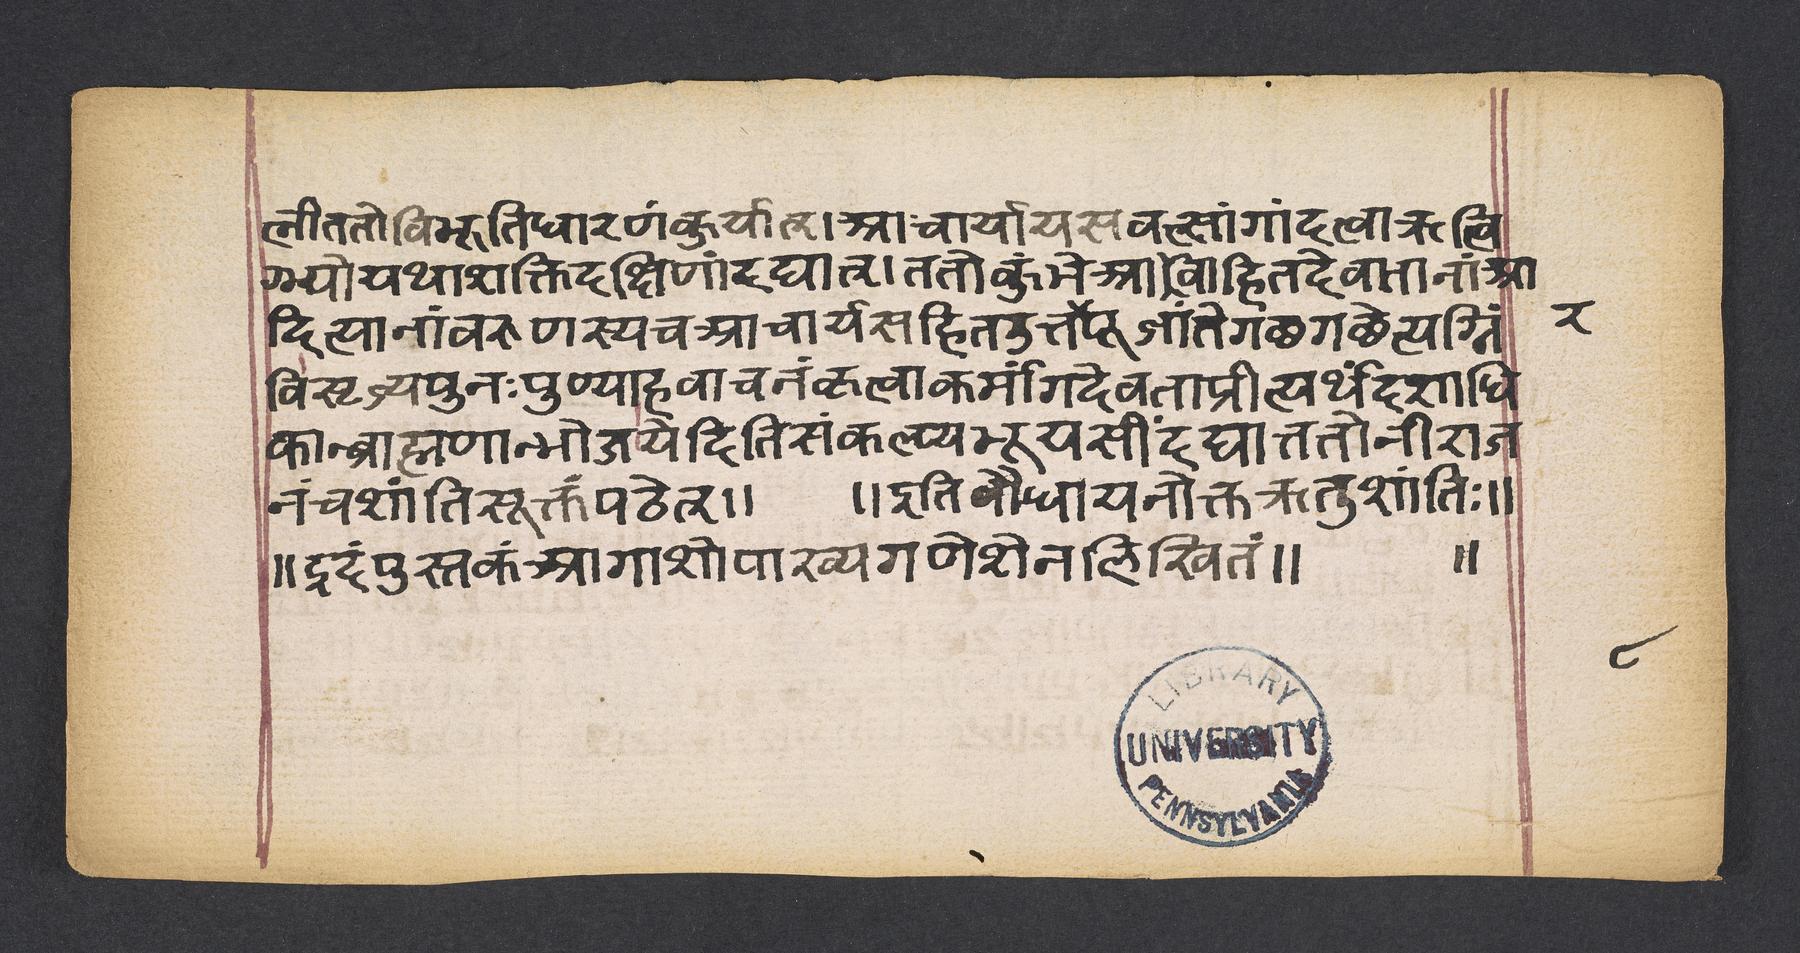 त्नीततोविभूतिधारणंकुर्यात्।आचार्यायसवत्सांगांदत्वाऋत्वि
ग्भ्योयथाशक्तिदक्षिणांदद्यात्।ततोकुंभेआवाहितदेवातानांआ
दित्यानांवरुणस्यचआचार्यसहित
र
विसृज्यपुनःपुण्याहवाचनंकृत्वाकर्मांगदेवताप्रीत्यर्थंदशाधि
कान्ब्राह्मणान्भोजयेदितिसंकल्प्यभूयसींदद्यात्ततोनीराज
नंचशांतिसूक्तंपठेत्॥ ॥इतिबौधायनोक्तऋतुशांतिः॥
॥इदंपुस्तकंआगाशोपाख्यगणेशेनलिखितं॥ ॥
८
LIBRARY
UNIVERSITY
PENNSYLVANIA